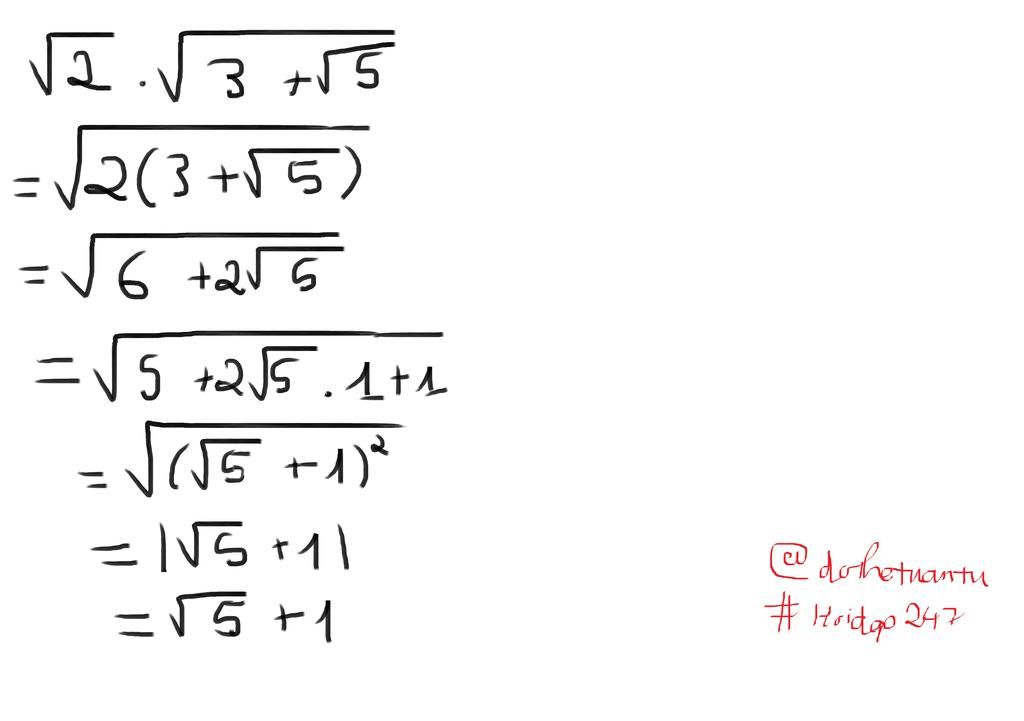 √2 . √(3 + √5)
= √(2(3 + √5))
= √(6 + 2√5)
= √(5 + 2√5 . 1 + 1)
= √((√5 + 1)²)
= |√5 + 1|
= √5 + 1
@dothetuantu
# Hoidap247